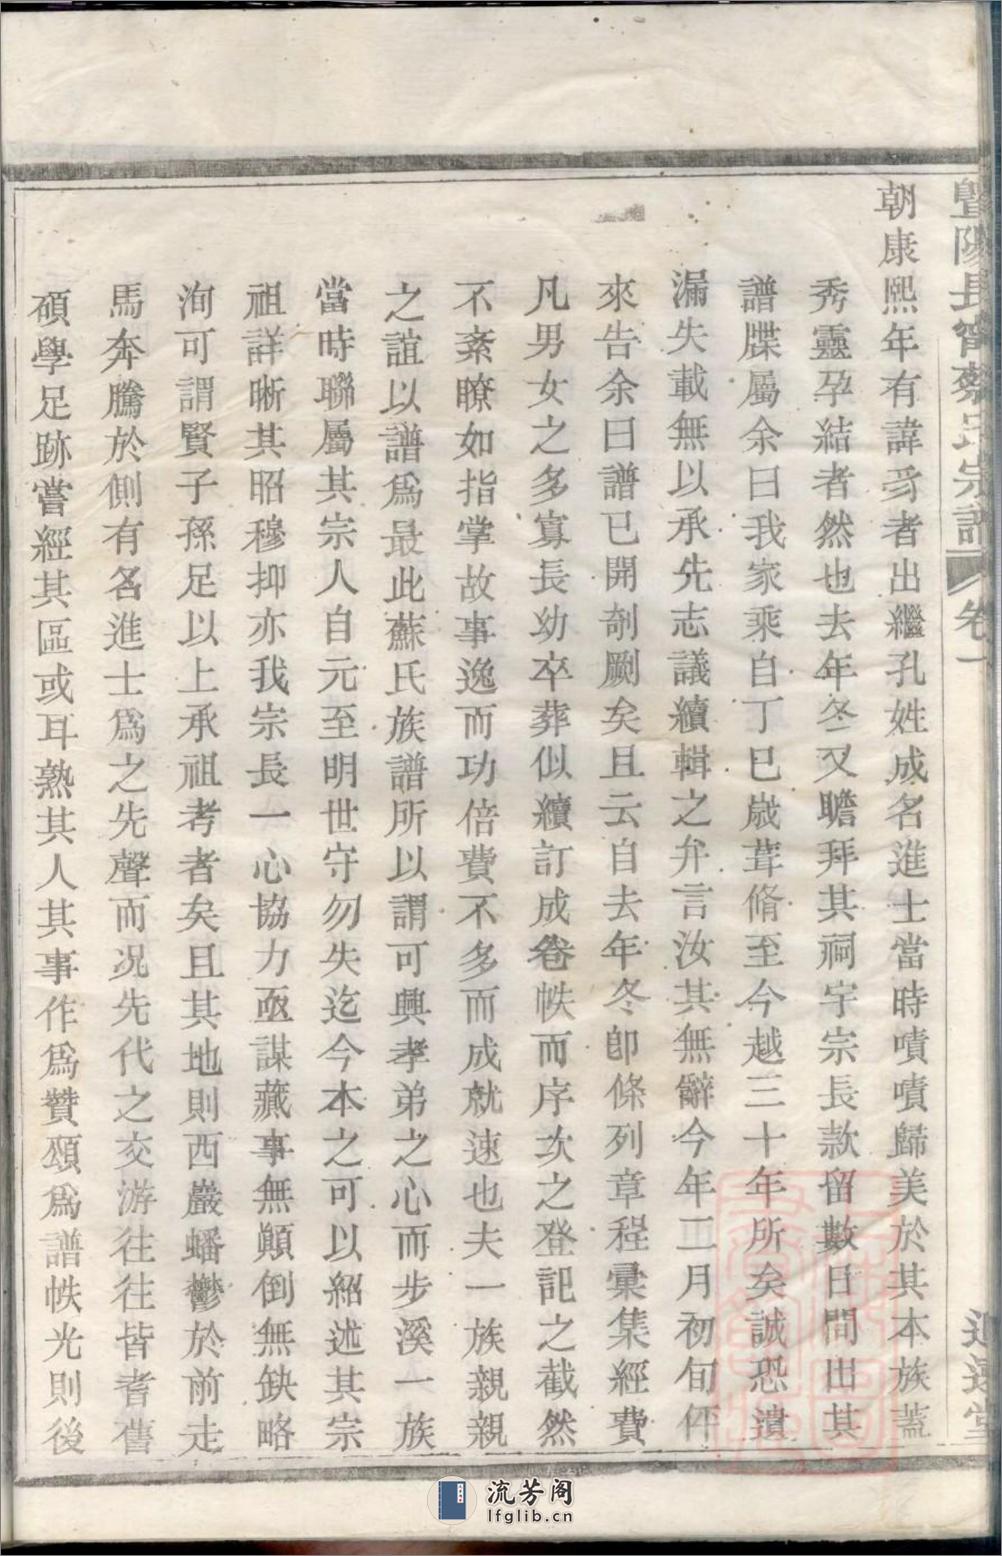 暨陽長甯蔡氏宗譜 卷一
朝康熙年有諱受者出繼孔姓成名進士當時嘖嘖歸美於其本族蓋
秀靈孕結者然也去年冬又瞻拜其祠宇宗長款留數日間出其
譜牒屬余曰我家乘自丁巳歲葺脩至今越三十年所矣誠恐遺
漏失載無以承先志議續輯之弁言汝其無辭今年二月初旬伻
來告余曰譜已開剞劂矣且云自去年冬卽條列章程彙集經費
凡男女之多寡長幼卒葬似續訂成卷帙而序次之登記之截然
不紊瞭如指掌故事逸而功倍費不多而成就速也夫一族親親
之誼以譜爲最此蘇氏族譜所以謂可興孝弟之心而步溪一族
當時聯屬其宗人自元至明世守勿失迄今本之可以紹述其宗
祖詳晰其昭穆抑亦我宗長一心協力亟謀蕆事無顚倒無缺略
洵可謂賢子孫足以上承祖考者矣且其地則西巖蟠鬱於前走
馬奔騰於側有名進士爲之先聲而况先代之交游往往皆耆舊
碩學足跡嘗經其區或耳熟其人其事作爲贊頌爲譜帙光則後
流芳阁
lfglib.cn